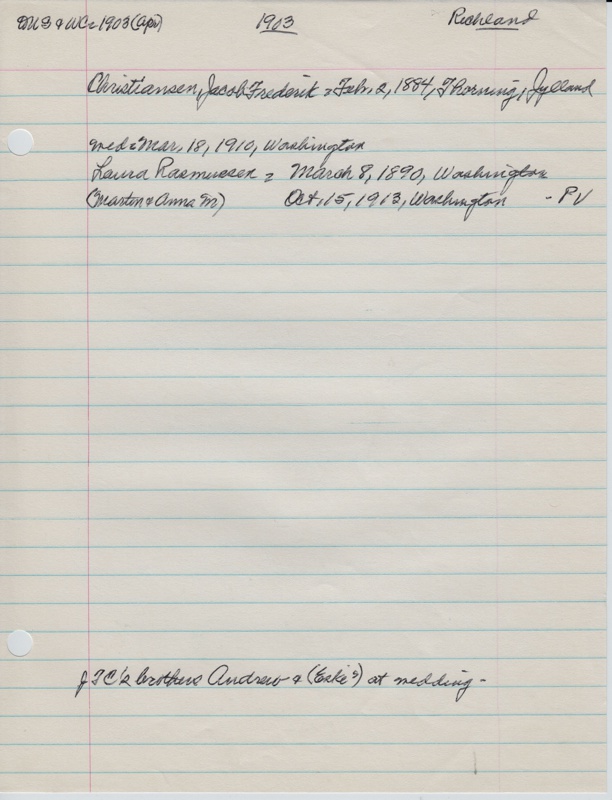 DMB & WC = 1903 (Apr) 1903 Richland
Christiansen, Jacob Frederik = Feb. 2, 1884, Thorning, Jylland
wed = Mar. 18, 1910, Washington
Laura Rasmussen = March 8, 1890, Washington
(Marton & Anna M) Oct. 15, 1913, Washington - PV
JFC's brothers Andrew & (Eski?) at wedding -